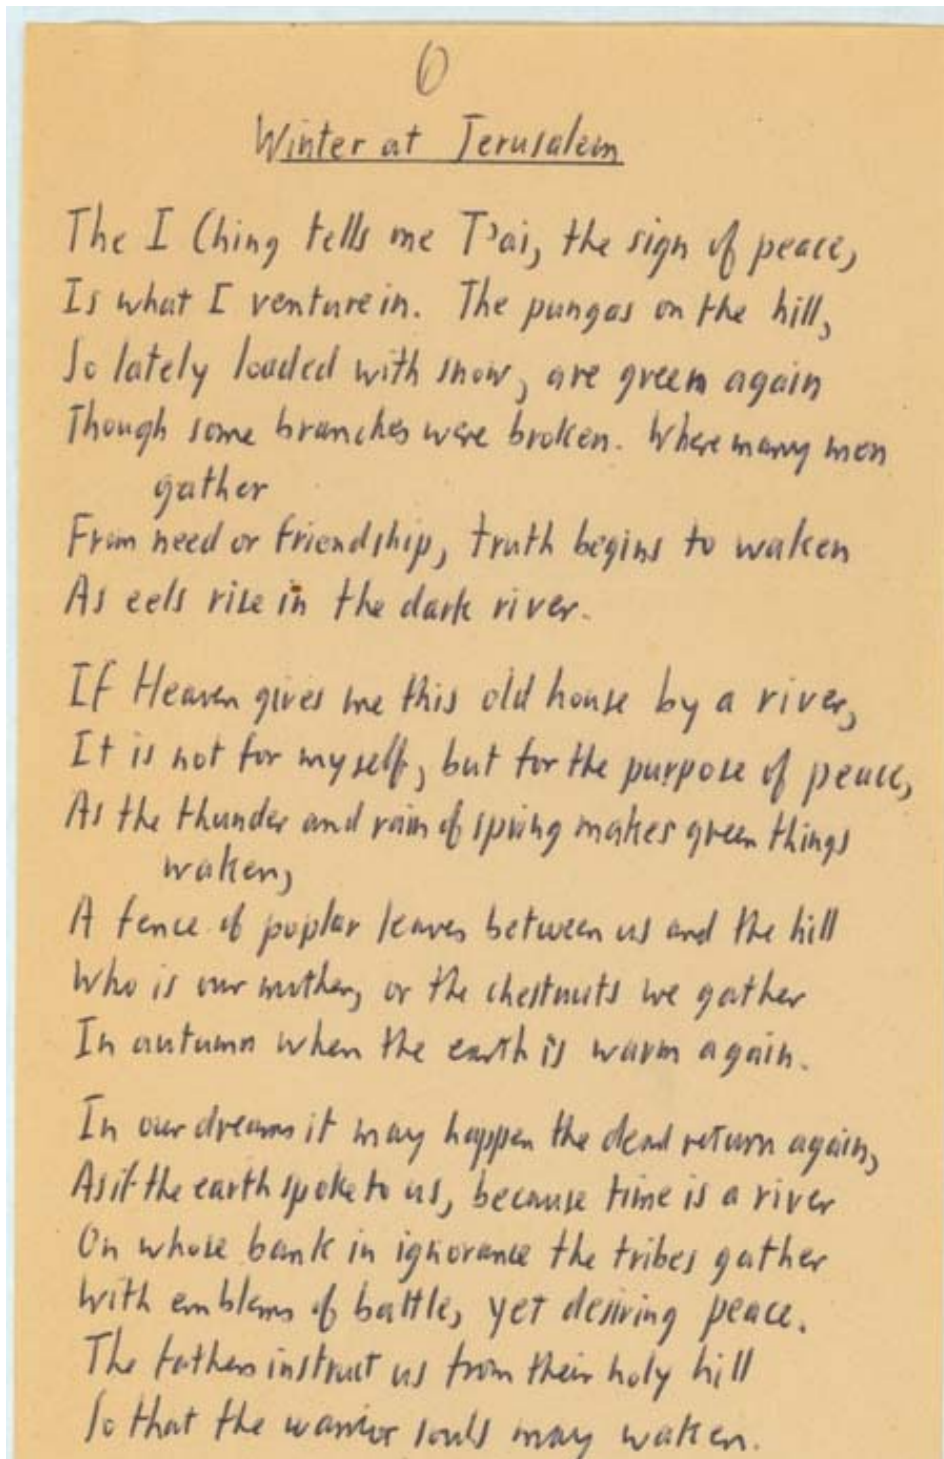 6
Winter at Jerusalem
The I Ching tells me T'ai, the sign of peace,
Is what I venture in. The pungas on the hill,
So lately loaded with snow, are green again
Though some branches were broken. Where many men
gather
From need or friendship, truth begins to waken
As eels rise in the dark river.
If Heaven gives me this old house by a river,
It is not for myself, but for the purpose of peace,
As the thunder and rain of spring makes green things
waken,
A fence of poplar leaves between us and the hill
Who is our mother, or the chestnuts we gather
In autumn when the earth is warm again.
In our dreams it may happen the dead return again,
As if the earth spoke to us, because time is a river
On whose bank in ignorance the tribes gather
With emblems of battle, yet desiring peace.
The fathers instruct us from their holy hill
So that the warrior souls may waken.